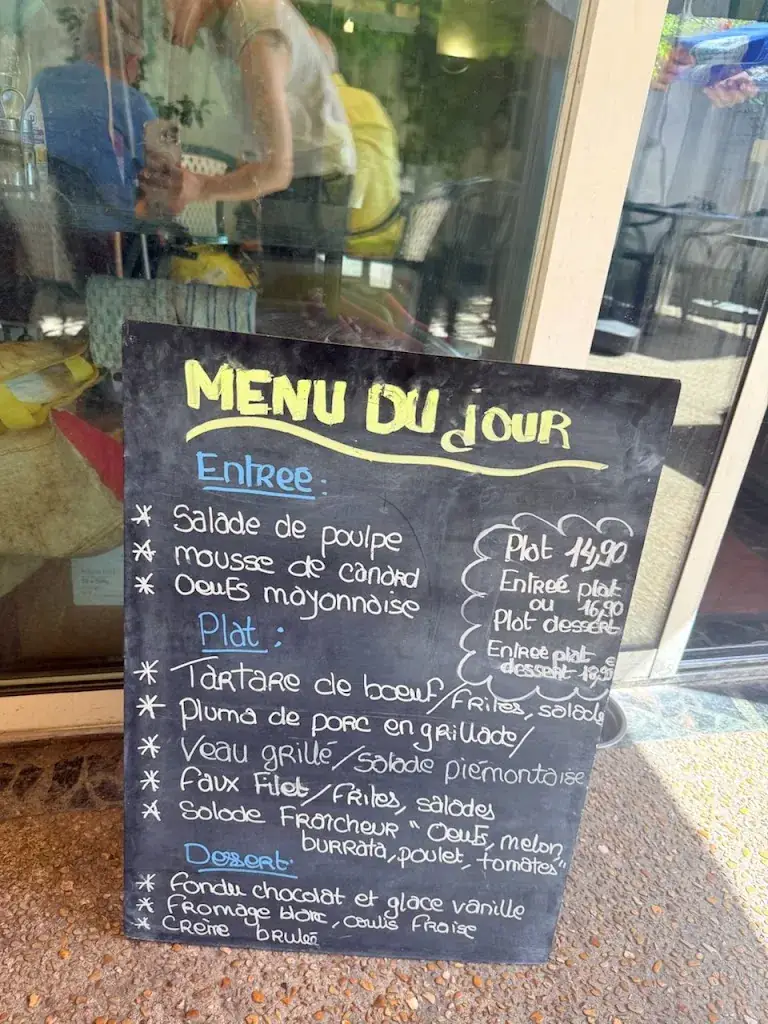 MENU DU JOUR
Entree :
* Salade de poulpe
* mousse de canard
* Oeufs mayonnaise
Plat 14,90
Entreé plat
ou 16,90
Plat dessert
Entreé plat
dessert 18,90
Plat :
* Tartare de boeuf/frites, salade
* Pluma de porc en grillade/
* Veau grillé/salade piémontaise
* Faux Filet/frites, salades
* Salade Fraîcheur " Oeufs, melon,
burrata, poulet, tomates"
Dessert
* Fondu chocolat et glace vanille
* Fromage blanc, coulis Fraise
* Creme brulée